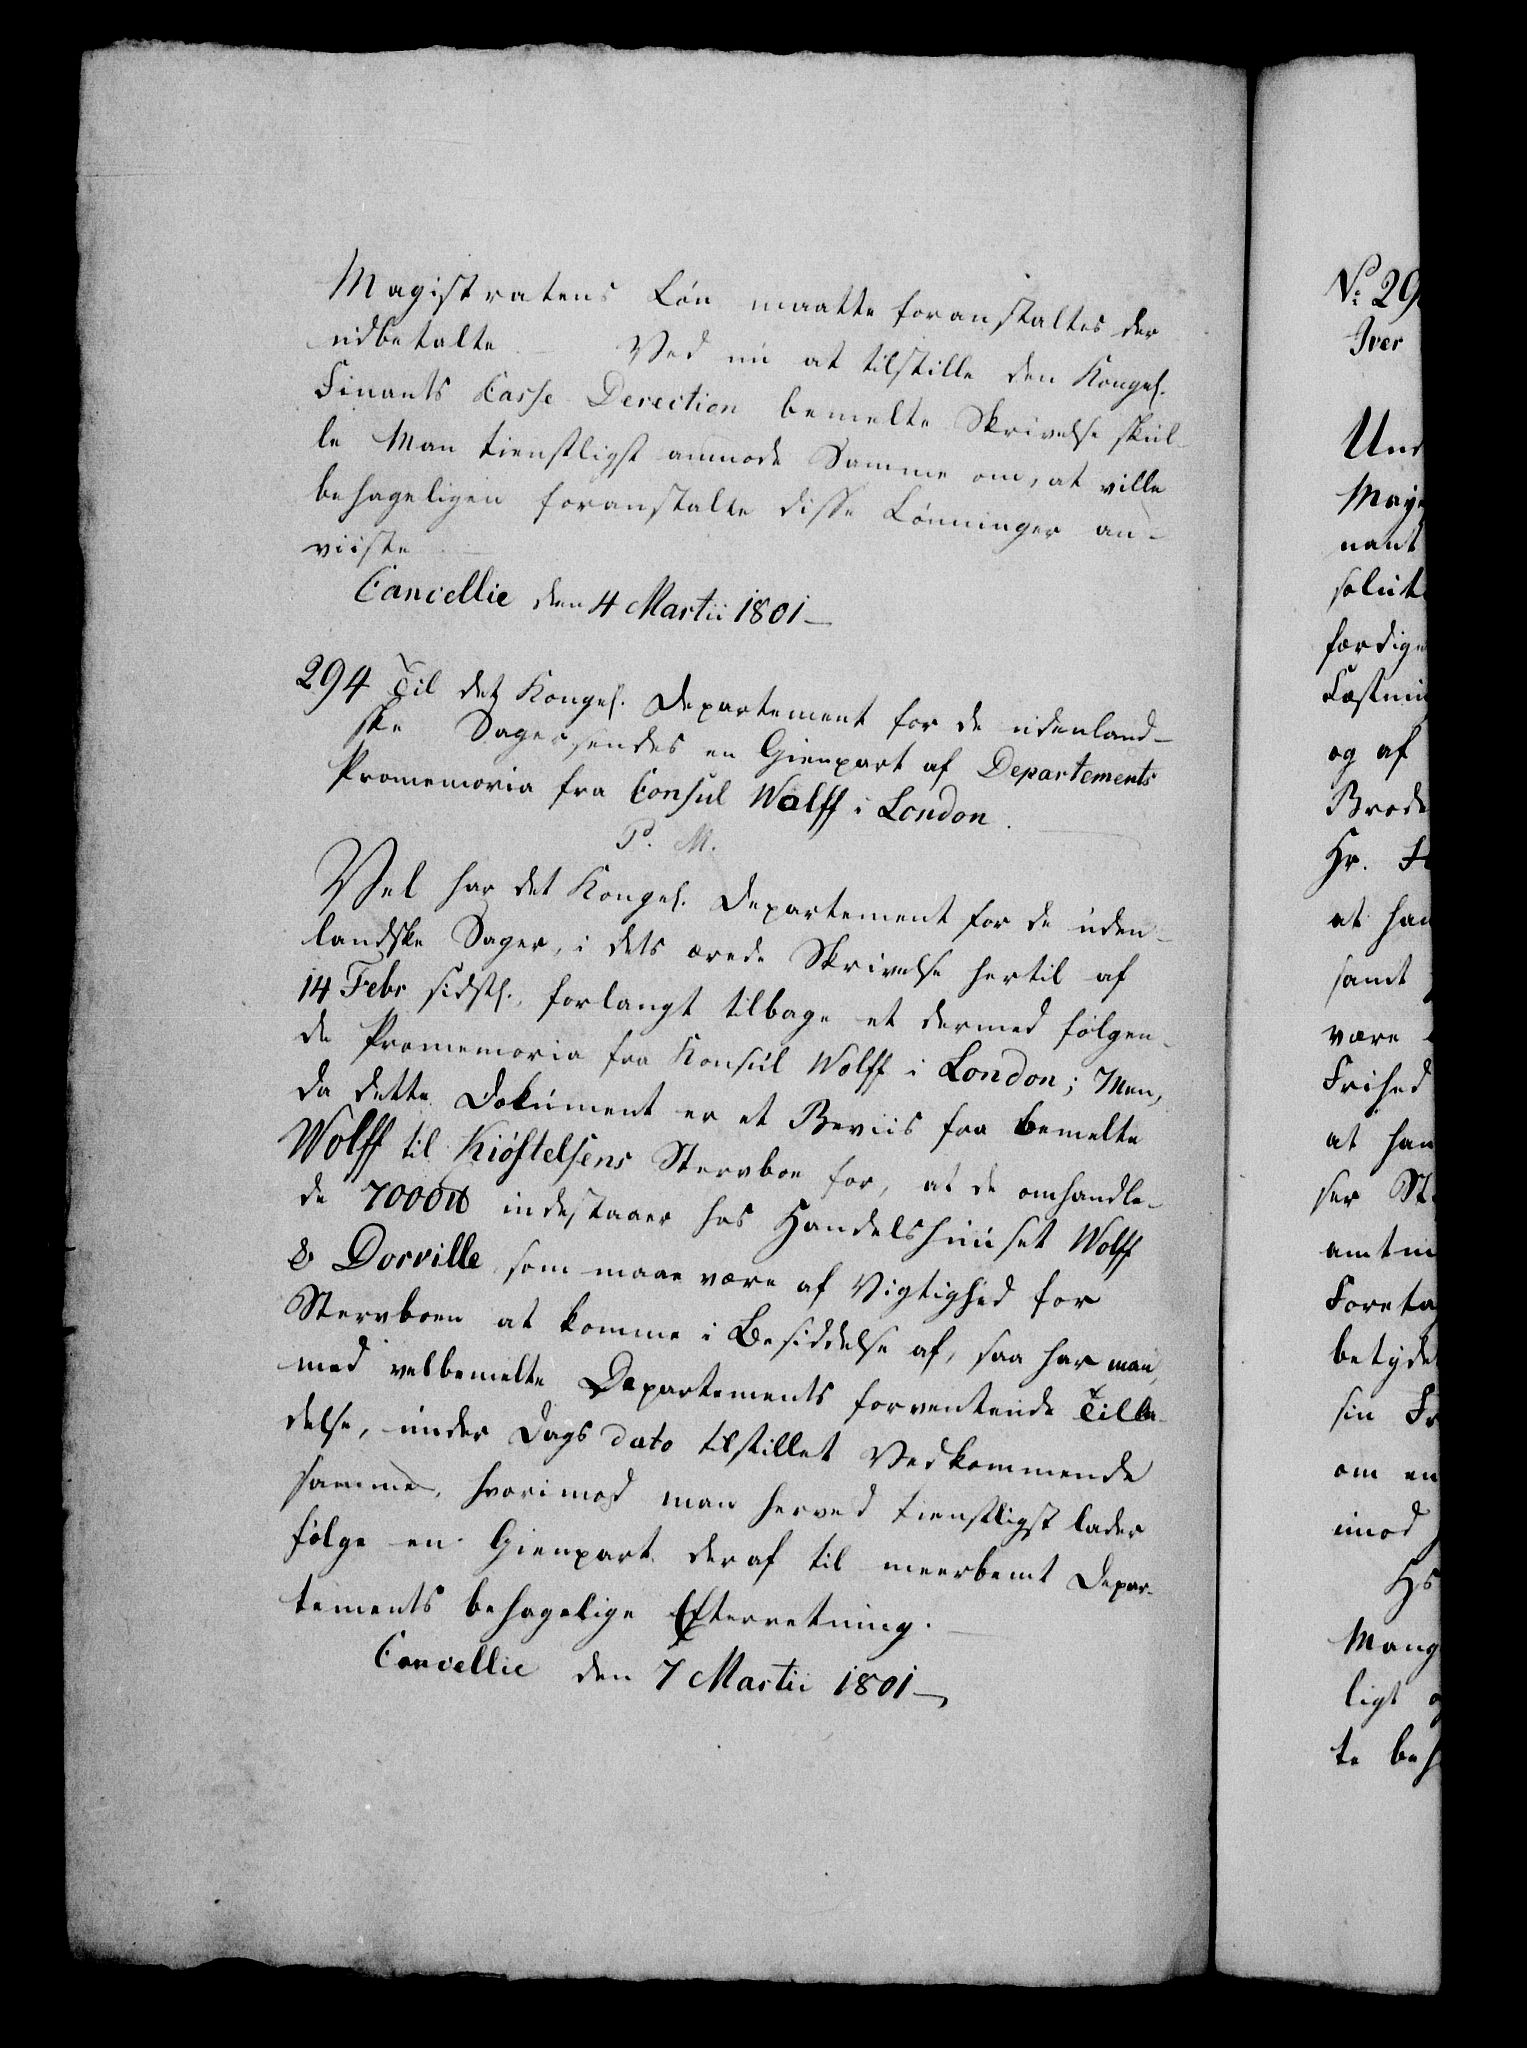 Magistratens Løn maatte foranstaltes der
udbetalte. – Ved nu at tilstille den Kongel.
Finants Casse Derection bemelte Skrivelse skul-
le Man tienstligst anmode Samme om, at ville
behageligen foranstalte disse Lønninger an-
viiste. –
Cancellie den 4 Martii 1801 –
294 Til det Kongel. Departement for de udenland-
ske Sager sendes en Gienpart af Departements
Promemoria fra Consul Wolff i London. –
P. M.
Vel har det Kongel. Departement for de uden-
landske Sager, i dets ærede Skrivelse hertil af
14 Febr sidstl., forlangt tilbage et dermed følgen-
de Promemoria fra Konsul Wolff i London; Men,
da dette Dokument er et Beviis fra bemelte
Wolff til Kiøstelsens Stervboe for, at de omhandle-
de 7000 indestaaer hos Handelshuuset Wolff
& Dorville som maae være af Vigtighed for
Stervboen at komme i Besiddelse af, saa har man,
med velbemelte Departements forventende Tilla-
delse, under Dags dato tilstillet Vedkommende
samme, hvorimod man herved tienstligst lader
følge en Gienpart deraf til meerbemt Depar-
tements behagelige Efterretning. –
Cancellie den 7 Martii 1801 –
No 29
Iver
Und
May
nant
solut
færdig
Fæstni
og af
Brode
Hr. F
at han
samt
være
Frihed
at han
ser St
amtm
Foreta
betyde
sin Fr
om en
imod
Hs
Mang
ligt o
te beh